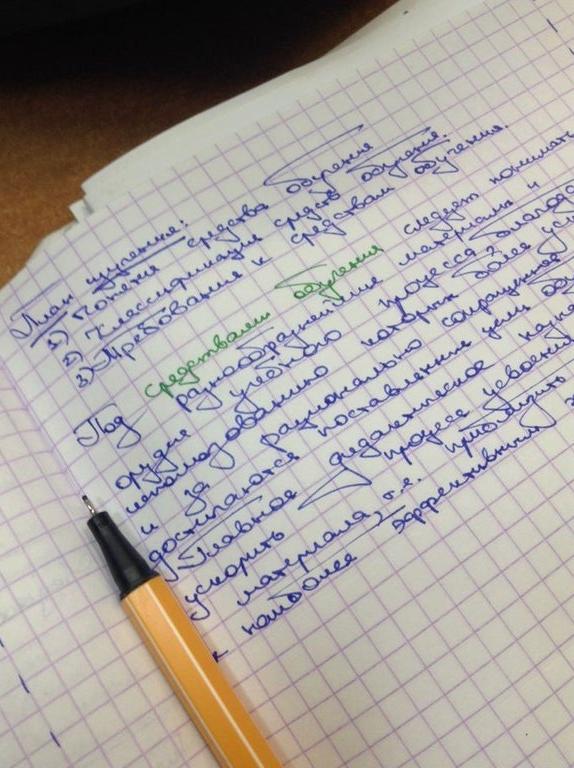 План изучения:
1) Понятия средства обучения
2) Классификация средств обучения.
3) Требования к средствам обучения.
Под средствами обучения следует понимать
разнообразнейшие материалы и
орудия учебного процесса, благода
использованию которых более усп
и за рационально сокращенное
достигаются поставленные цели обу
Главное дидактическое назна
ускорить процесс усвоения
материала, т.е. приблизить
к наиболее эффективным